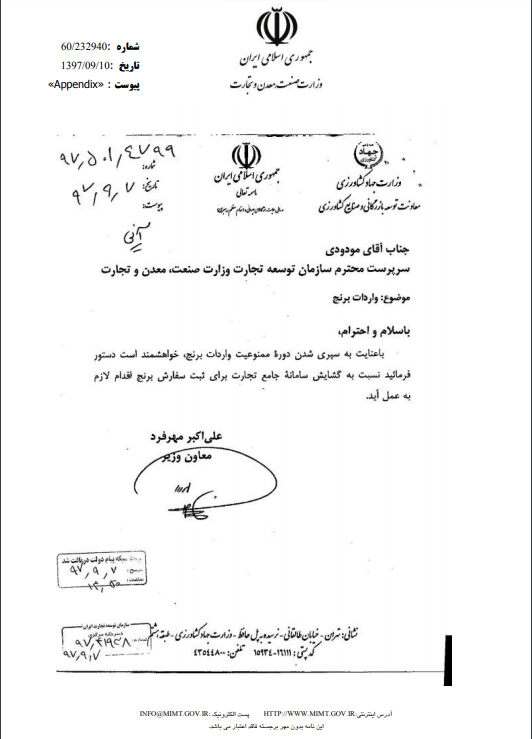 شماره :60/232940
تاریخ :1397/09/10
پیوست : «Appendix»
جمهوری اسلامی ایران
وزارت صنعت، معدن و تجارت
شماره:
تاریخ: ۹۷٫۹٫۷
پیوست:
آنی
جمهوری اسلامی ایران
باسمه تعالی
جهاد
کشاورزی
وزارت جهاد کشاورزی
معاونت توسعه بازرگانی و صنایع کشاورزی
جناب آقای مودودی
سرپرست محترم سازمان توسعه تجارت وزارت صنعت، معدن و تجارت
موضوع: واردات برنج
باسلام و احترام،
باعنایت به سپری شدن دورهٔ ممنوعیت واردات برنج، خواهشمند است دستور
فرمائید نسبت به گشایش سامانهٔ جامع تجارت برای ثبت سفارش برنج اقدام لازم
به عمل آید.
علی‌اکبر مهرفرد
معاون وزیر
شبکه پیام دولت دریافت شد
۹۷٫۹٫۷
سازمان توسعه تجارت ایران
۹۷٫۹٫۷
نشانی: تهران - خیابان طالقانی - نرسیده به پل حافظ - وزارت جهاد کشاورزی - طبقه هشتم
کد پستی: ۱۶۱۱۱-۱۵۹۳۴ تلفن: ۴۳۵۴۴۸۰۰
آدرس اینترنتی:HTTP://WWW.MIMT.GOV.IR پست الکترونیک :INFO@MIMT.GOV.IR
این نامه بدون مهر برجسته فاقد اعتبار می باشد.